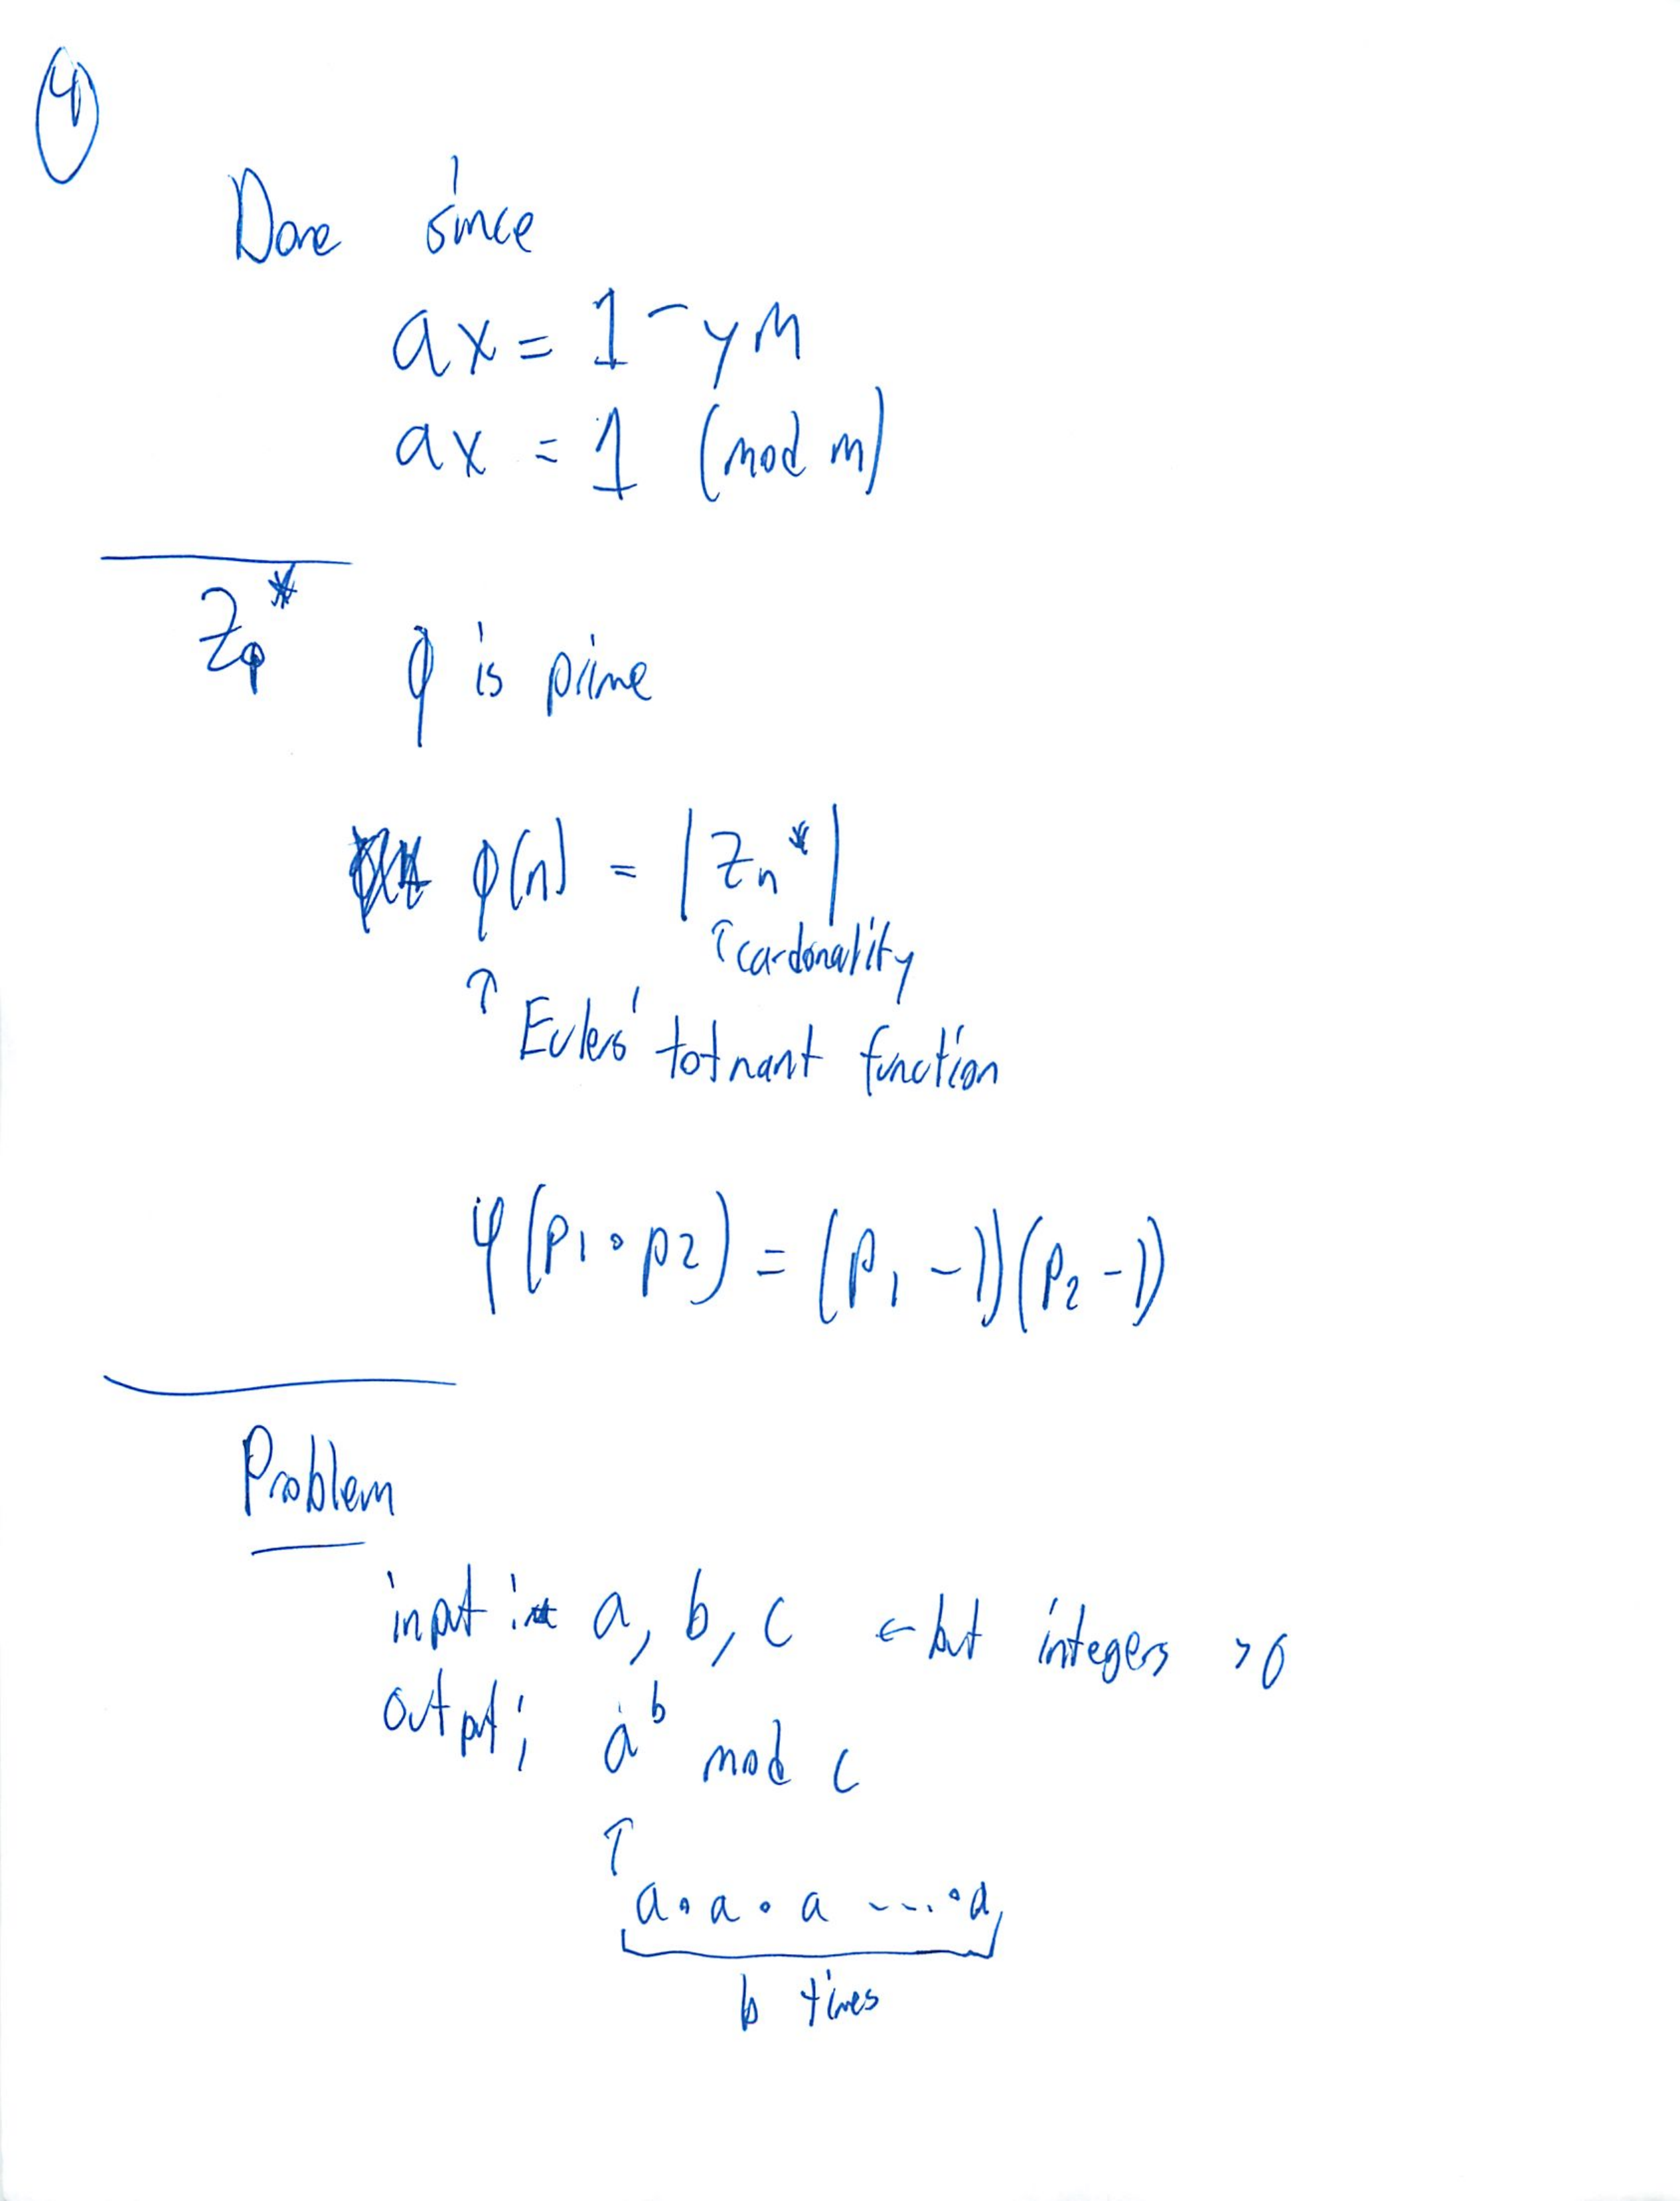 4
Done since
ax = 1 - ym
ax = 1 (mod m)
Zp*
p is prime
φ(n) = |Zn*|
↑ cardonality
↑ Eulers' totnant function
φ(p1 ∘ p2) = (p1 - 1)(p2 - 1)
Problem
input: a, b, c ← but integers > 0
output; a^b mod c
↑
a ∘ a ∘ a ---. ∘ a
b times